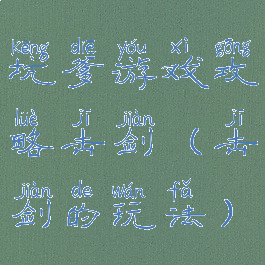 kēng diē yóu xì gōng
坑爹游戏攻
lüè jī jiàn jī
略击剑（击
jiàn de wán fǎ
剑的玩法）